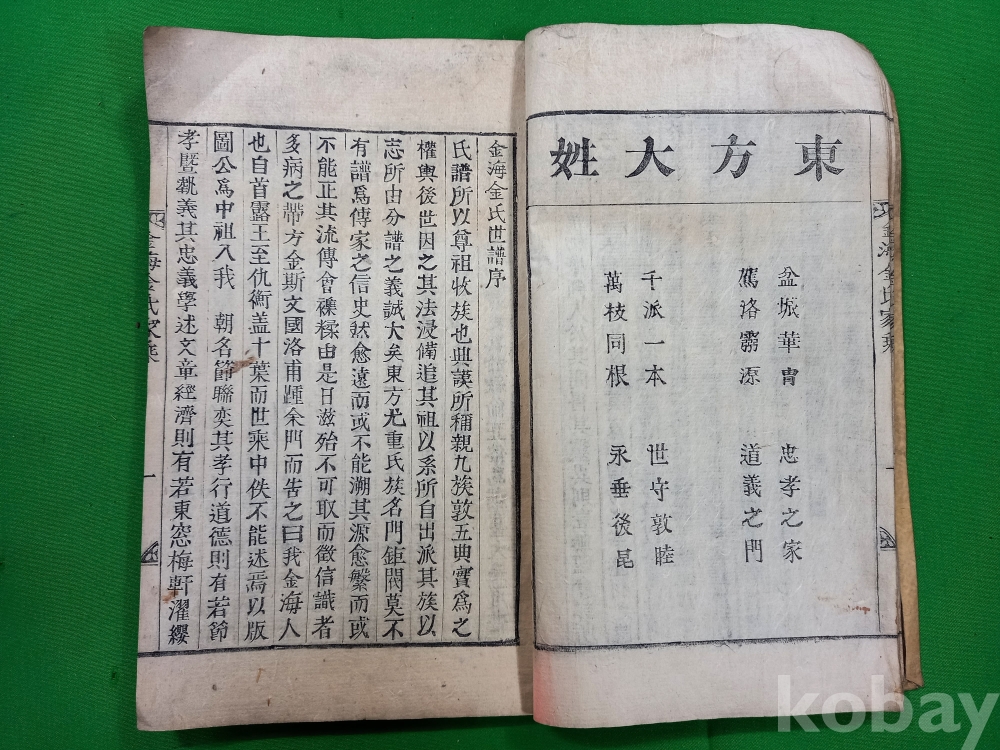 東方大姓
盆振華冑 忠孝之家
駕洛霱源 道義之門
千派一本 世守敦睦
萬枝同根 永垂後昆
金海金氏世譜序
氏譜所以尊祖收族也典謨所稱親九族敦五典實爲之
權輿後世因之其法浸備追其祖以系所自出派其族以
志所由分譜之義誠大矣東方尤重氏族名門鉅閥莫不
有譜爲傳家之信史然愈遠而或不能溯其源愈繁而或
不能正其流傅會襍糅由是日滋殆不可取而徵信識者
多病之帶方金斯文國洛甫踵余門而告之曰我金海人
也自首露王至仇衡盖十葉而世乘中佚不能述焉以版
圖公爲中祖入我 朝名節聯奕其孝行道德則有若節
孝曁執義其忠義學述文章經濟則有若東窓梅軒濯纓
金海金氏家乘
金海金氏家乘
一
kobay